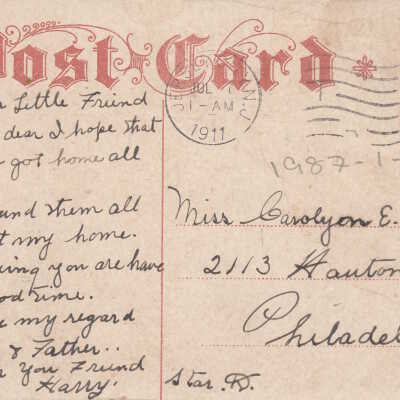 Post Card
JUL
1-AM
1911
N.J.
1987-1-
Little Friend
dear I hope that
got home all
them all
my home.
you are have
time.
my regard
& Father..
You Friend
Harry.
Miss Carolyon E.
2113
Philadel
Star. D.